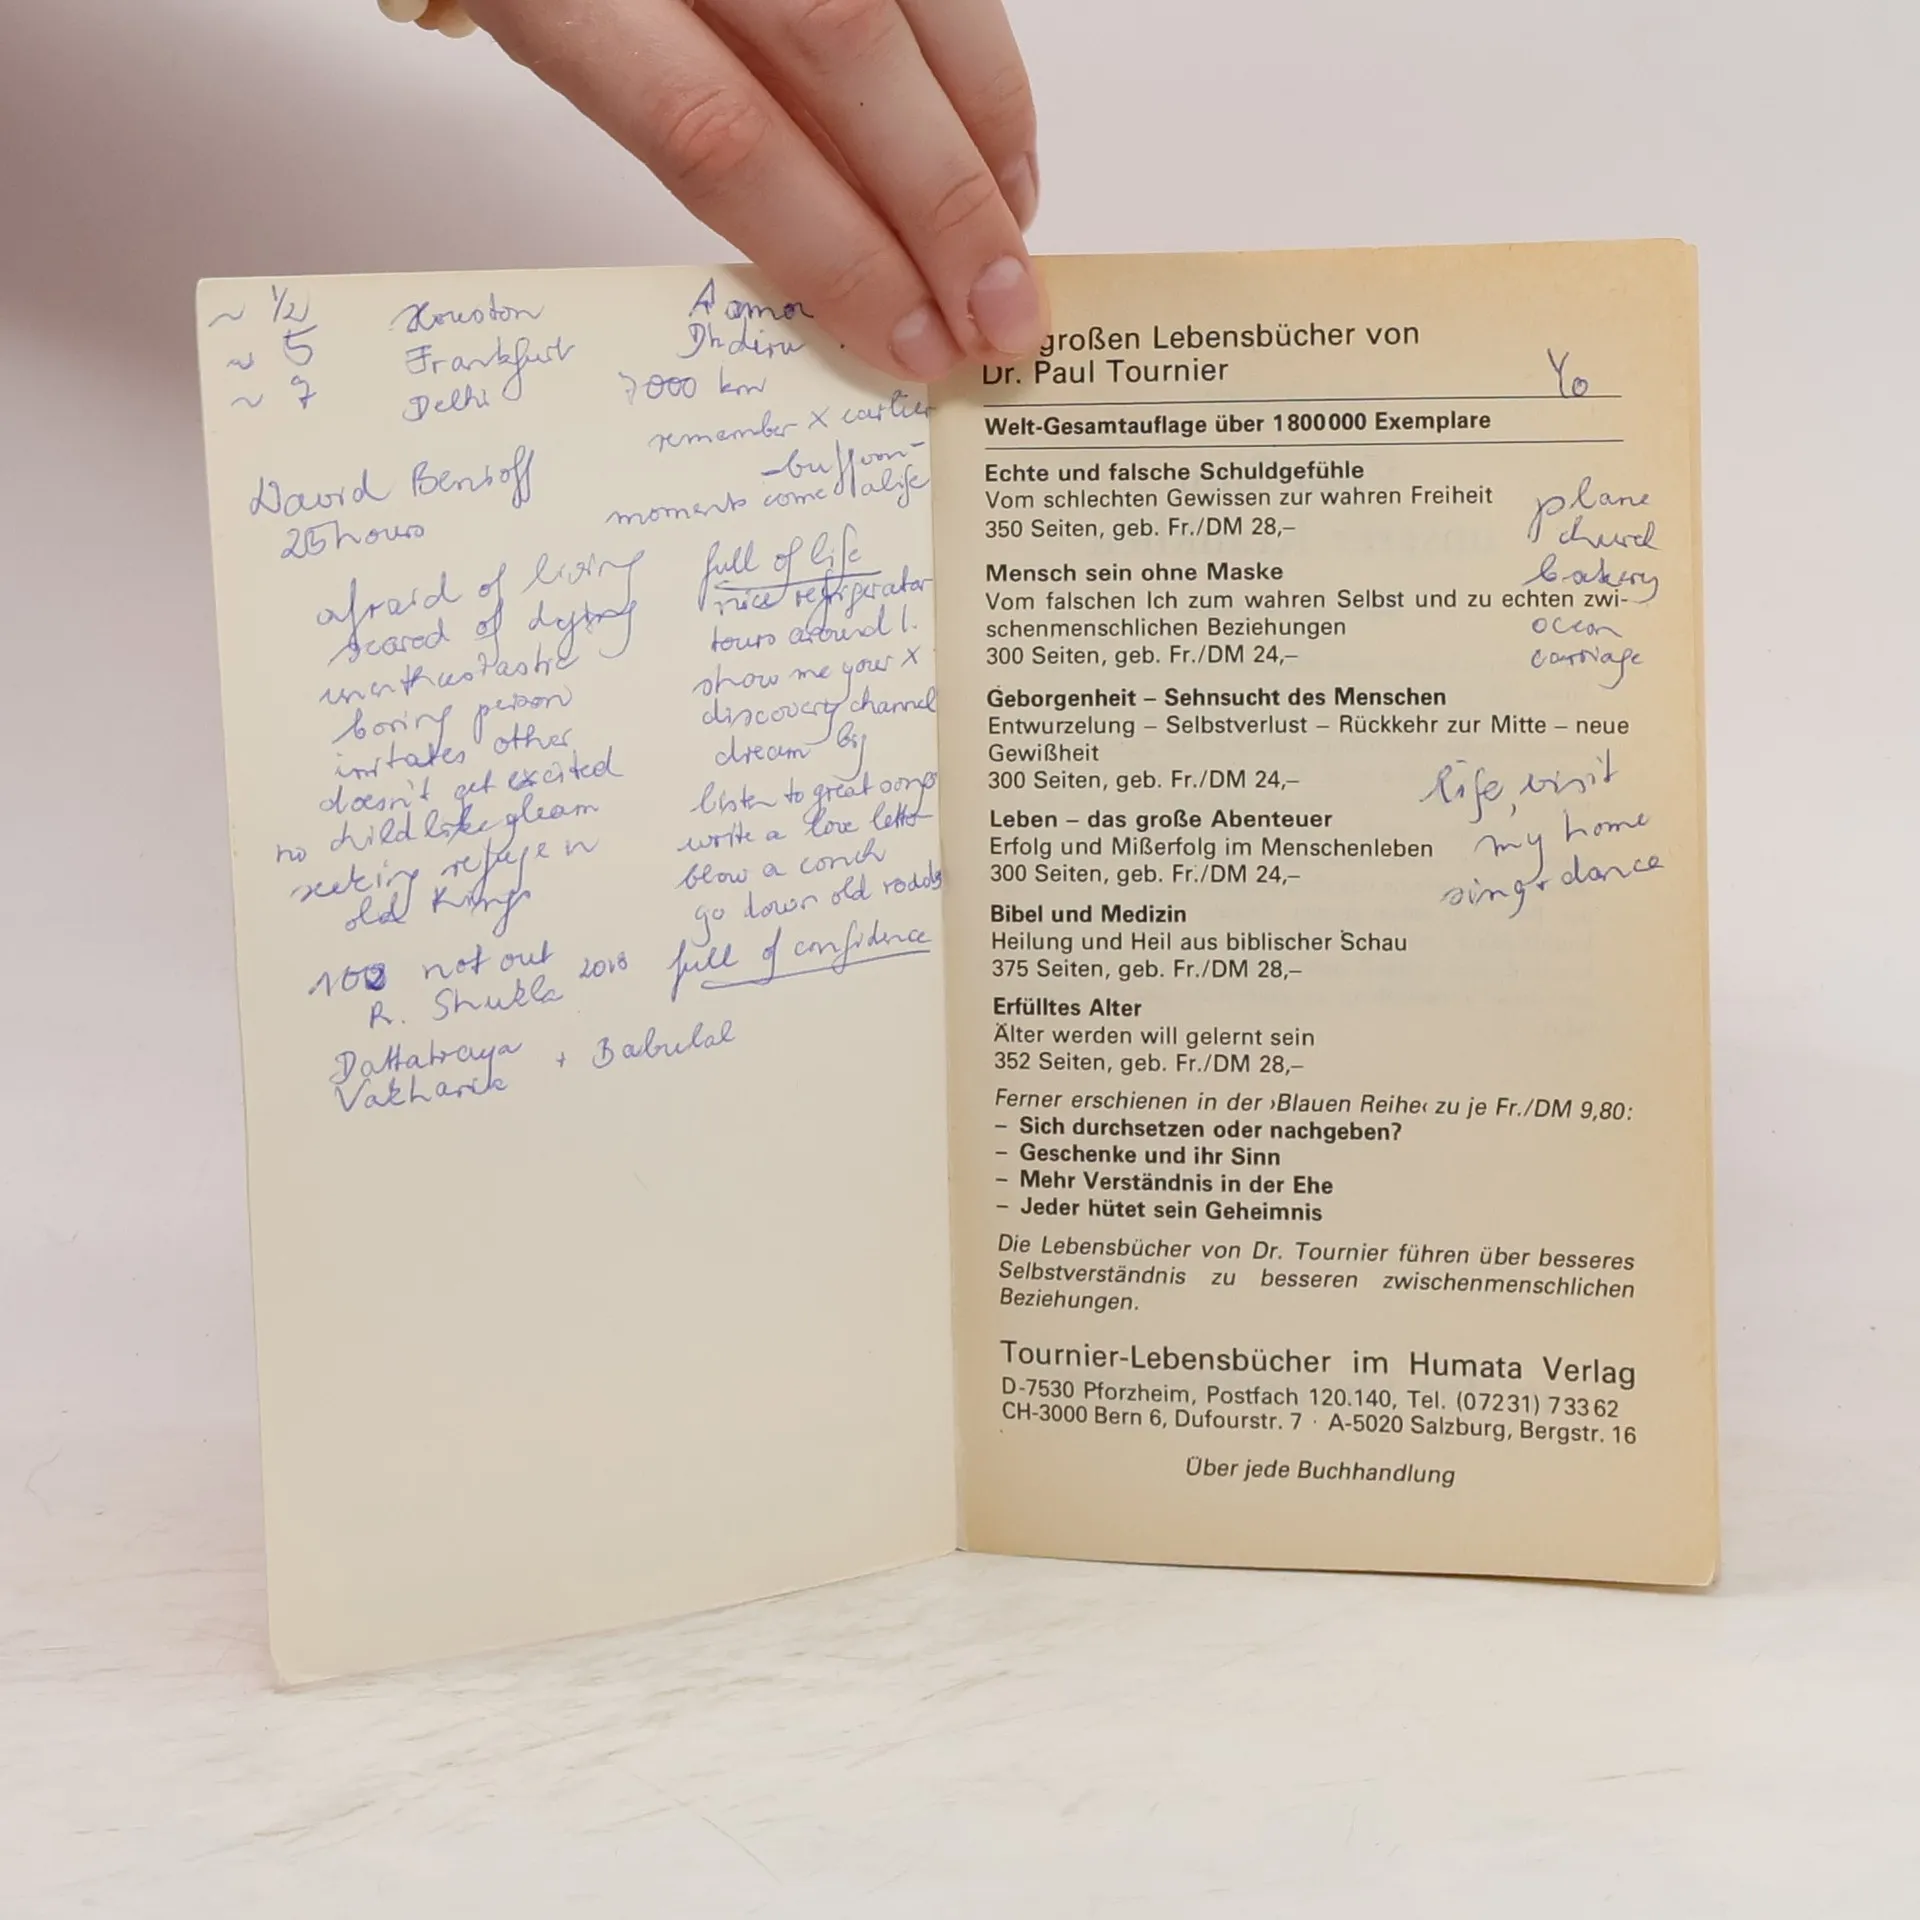 ~ 1/2 Houston Aamor
~ 5 Frankfurt Dhdiru
~ 7 Delhi 7000 km
remember X earlier
-buffoon-
David Benioff moments come alife
25 hours
afraid of living full of life
scared of dying nice refrigerator
unenthustastic tours around l.
boring person show me your X
irritates other discovery channel
doesn't get excited dream big
no childlike gleam listen to great songs
seeking refuge n write a love letter
old things blow a conch
go down old roads
102 not out 2018 full of confidence
R. Shukla
Dattatraya + Babulal
Vakharia
großen Lebensbücher von
Dr. Paul Tournier
Yo
Welt-Gesamtauflage über 1800000 Exemplare
Echte und falsche Schuldgefühle
Vom schlechten Gewissen zur wahren Freiheit
350 Seiten, geb. Fr./DM 28,–
plane
church
bakery
ocean
carriage
Mensch sein ohne Maske
Vom falschen Ich zum wahren Selbst und zu echten zwi-
schenmenschlichen Beziehungen
300 Seiten, geb. Fr./DM 24,–
Geborgenheit – Sehnsucht des Menschen
Entwurzelung – Selbstverlust – Rückkehr zur Mitte – neue
Gewißheit
300 Seiten, geb. Fr./DM 24,–
life, visit
my home
sing + dance
Leben – das große Abenteuer
Erfolg und Mißerfolg im Menschenleben
300 Seiten, geb. Fr./DM 24,–
Bibel und Medizin
Heilung und Heil aus biblischer Schau
375 Seiten, geb. Fr./DM 28,–
Erfülltes Alter
Älter werden will gelernt sein
352 Seiten, geb. Fr./DM 28,–
Ferner erschienen in der ›Blauen Reihe‹ zu je Fr./DM 9,80:
– Sich durchsetzen oder nachgeben?
– Geschenke und ihr Sinn
– Mehr Verständnis in der Ehe
– Jeder hütet sein Geheimnis
Die Lebensbücher von Dr. Tournier führen über besseres
Selbstverständnis zu besseren zwischenmenschlichen
Beziehungen.
Tournier-Lebensbücher im Humata Verlag
D-7530 Pforzheim, Postfach 120.140, Tel. (07231) 73362
CH-3000 Bern 6, Dufourstr. 7 · A-5020 Salzburg, Bergstr. 16
Über jede Buchhandlung